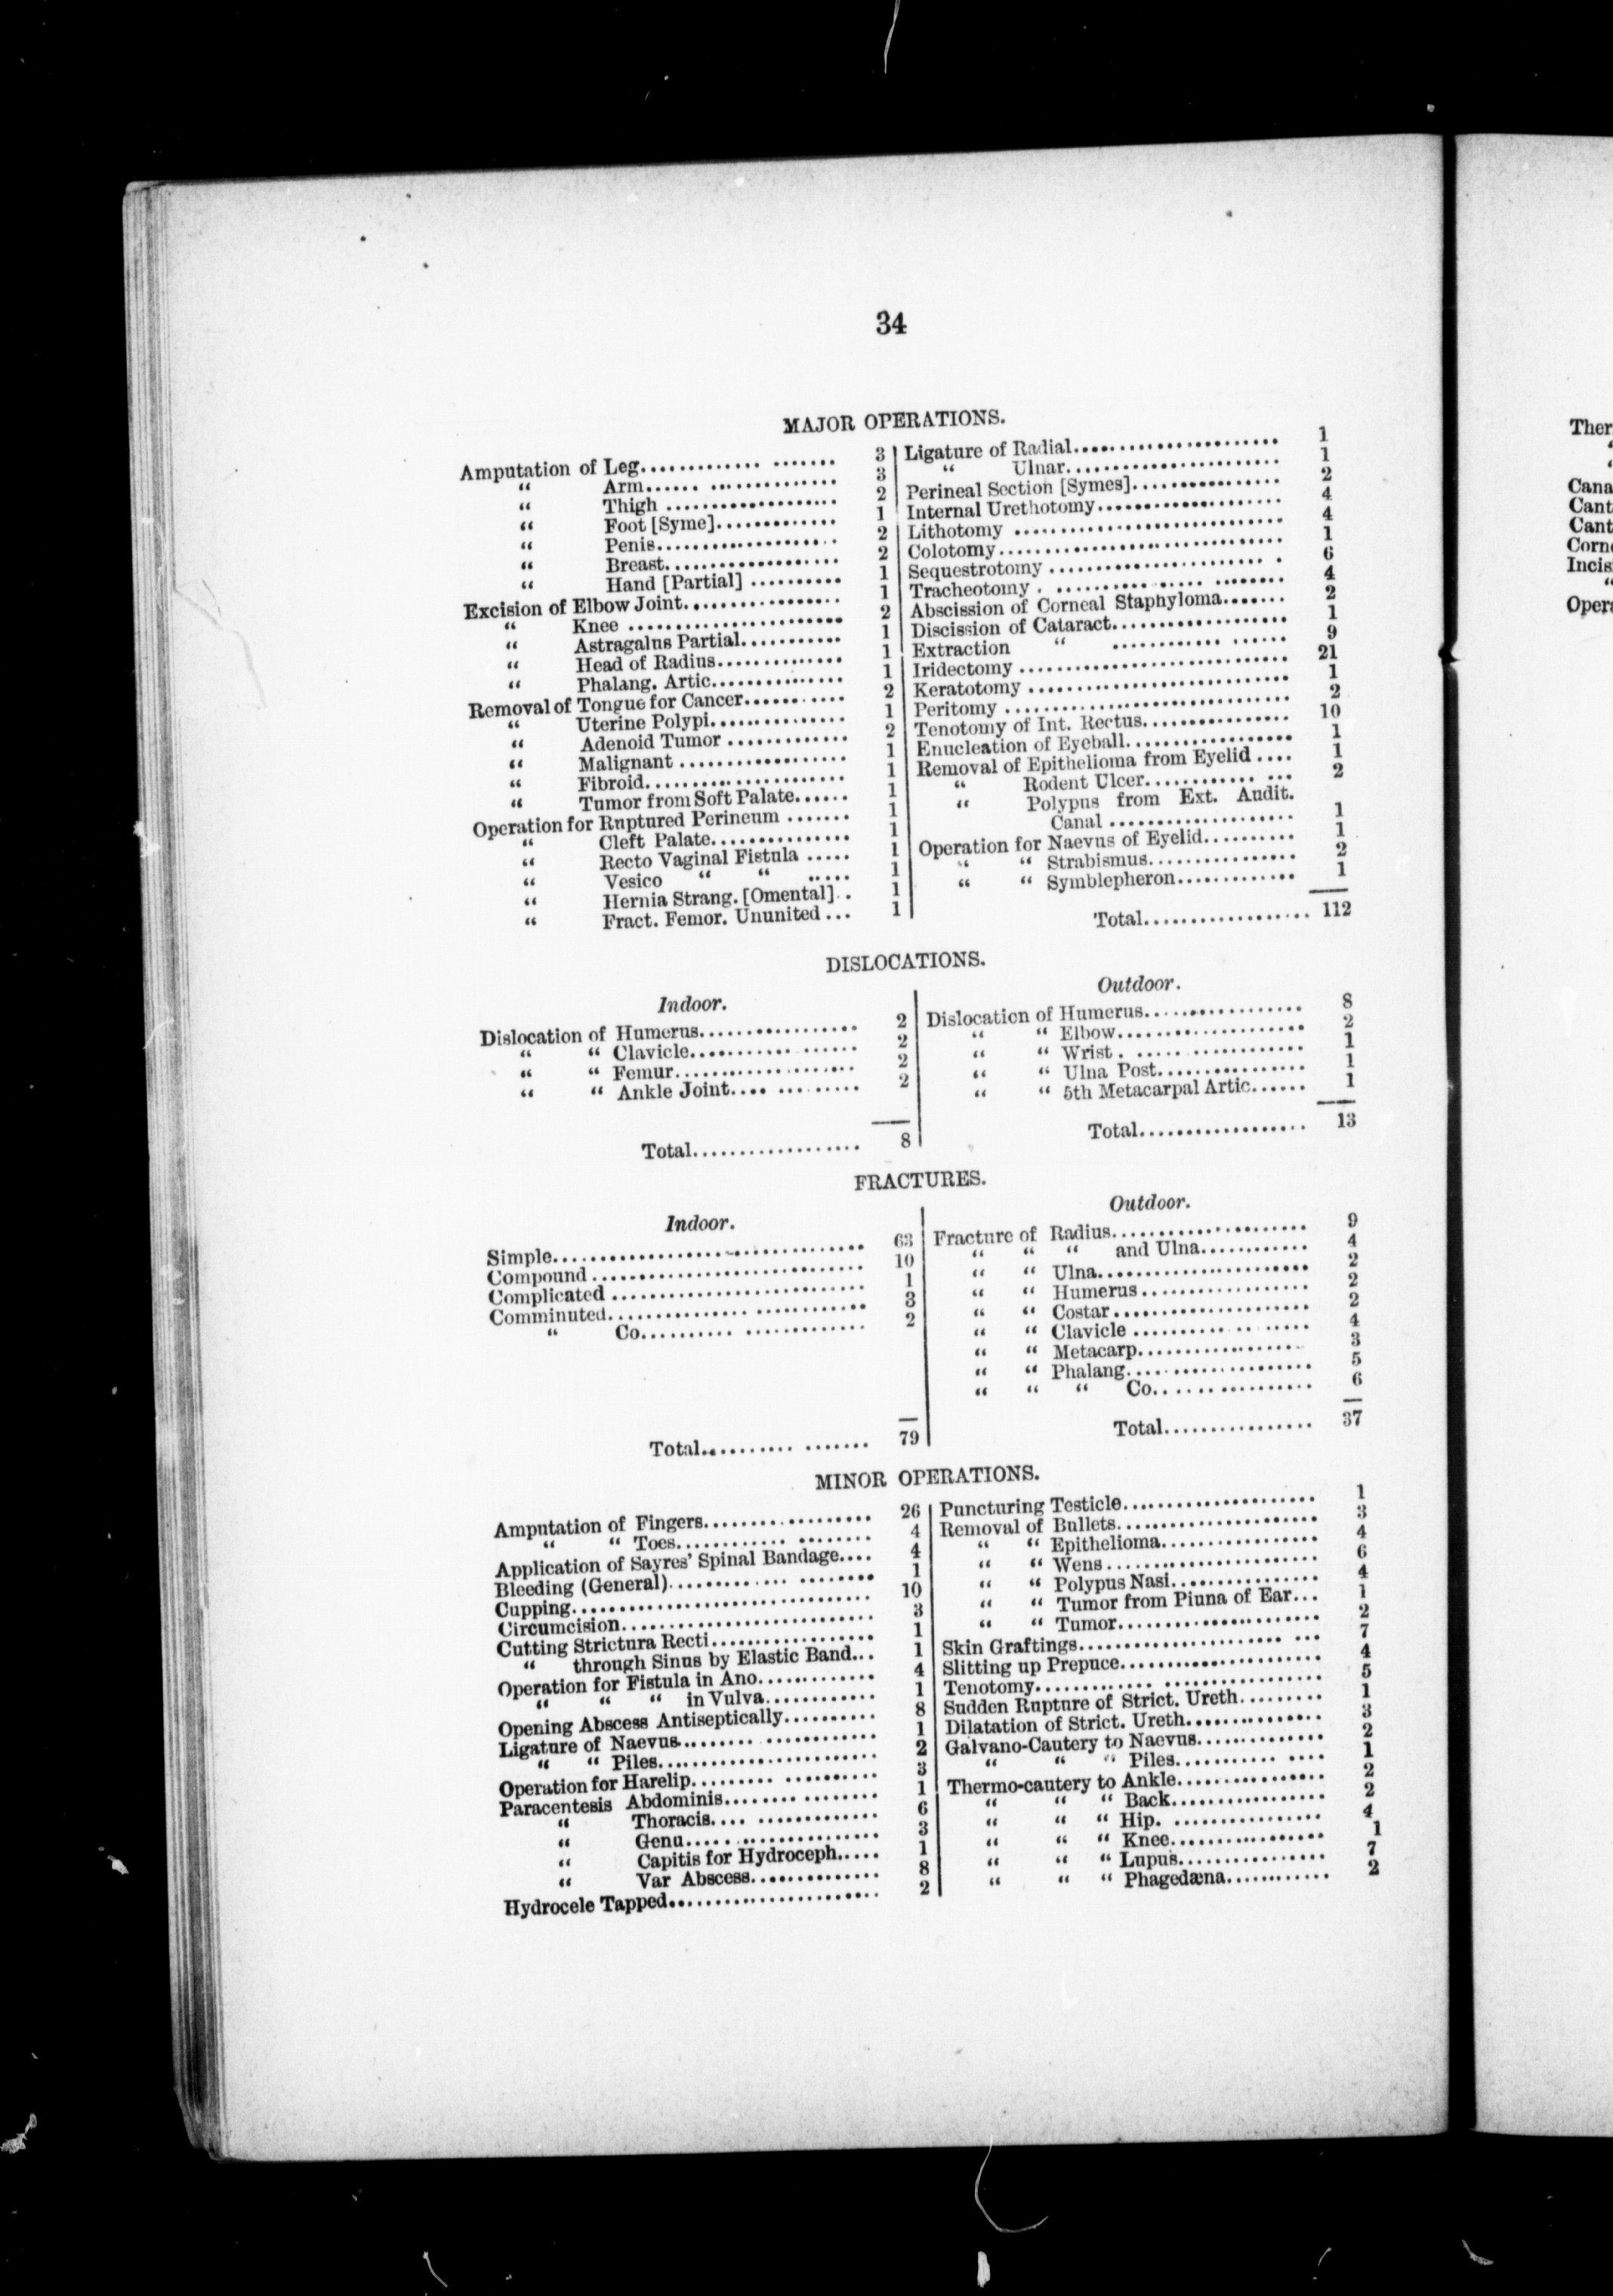 34
MAJOR OPERATIONS.
Amputation of Leg.................... 3
“ Arm.................... 3
“ Thigh................... 2
“ Foot [Syme]............. 1
“ Penis................... 2
“ Breast................... 2
“ Hand [Partial].......... 1
Excision of Elbow Joint................. 1
“ Knee........................ 2
“ Astragalus Partial........... 1
“ Head of Radius.............. 1
“ Phalang. Artic............... 1
Removal of Tongue for Cancer........... 2
“ Uterine Polypi............... 1
“ Adenoid Tumor............. 2
“ Malignant.................. 1
“ Fibroid...................... 1
“ Tumor from Soft Palate...... 1
Operation for Ruptured Perineum....... 1
“ Cleft Palate............... 1
“ Recto Vaginal Fistula..... 1
“ Vesico “ “ ..... 1
“ Hernia Strang. [Omental].. 1
“ Fract. Femor. Ununited... 1
Ligature of Radial...................... 1
“ Ulnar....................... 1
Perineal Section [Symes]................ 2
Internal Urethotomy.................... 4
Lithotomy............................. 4
Colotomy.............................. 1
Sequestrotomy........................ 6
Tracheotomy......................... 4
Abscission of Corneal Staphyloma....... 2
Discission of Cataract................... 1
Extraction “ .................. 9
Iridectomy............................. 21
Keratotomy............................ 1
Peritomy............................... 2
Tenotomy of Int. Rectus................ 10
Enucleation of Eyeball.................. 1
Removal of Epithelioma from Eyelid.... 1
“ Rodent Ulcer............... 2
“ Polypus from Ext. Audit.
Canal.................... 1
Operation for Naevus of Eyelid.......... 1
“ “ Strabismus................ 2
“ “ Symblepheron............. 1
Total.................. 112
DISLOCATIONS.
Indoor.
Dislocation of Humerus................. 2
“ “ Clavicle................. 2
“ “ Femur................... 2
“ “ Ankle Joint............. 2
Total.................. 8
Outdoor.
Dislocation of Humerus................. 8
“ “ Elbow.................... 2
“ “ Wrist................... 1
“ “ Ulna Post................ 1
“ “ 5th Metacarpal Artic...... 1
Total.................. 13
FRACTURES.
Indoor.
Simple................................. 63
Compound............................. 10
Complicated........................... 1
Comminuted........................... 3
“ Co....................... 2
Total.................. 79
Outdoor.
Fracture of Radius..................... 9
“ “ “ and Ulna............ 4
“ “ Ulna....................... 2
“ “ Humerus.................. 2
“ “ Costar..................... 2
“ “ Clavicle................... 4
“ “ Metacarp.................. 3
“ “ Phalang.................... 5
“ “ “ Co................. 6
Total................ 37
MINOR OPERATIONS.
Amputation of Fingers.................. 26
“ “ Toes.................... 4
Application of Sayres' Spinal Bandage.... 4
Bleeding (General)...................... 1
Cupping................................ 10
Circumcision........................... 3
Cutting Strictura Recti.................. 1
“ through Sinus by Elastic Band... 1
Operation for Fistula in Ano............. 4
“ “ “ in Vulva............ 1
Opening Abscess Antiseptically.......... 8
Ligature of Naevus..................... 1
“ “ Piles....................... 2
Operation for Harelip................... 3
Paracentesis Abdominis................ 1
“ Thoracis................. 6
“ Genu.................... 3
“ Capitis for Hydroceph..... 1
“ Var Abscess.............. 8
Hydrocele Tapped...................... 2
Puncturing Testicle..................... 1
Removal of Bullets...................... 3
“ “ Epithelioma................ 4
“ “ Wens....................... 6
“ “ Polypus Nasi................ 4
“ “ Tumor from Piuna of Ear... 1
“ “ Tumor...................... 2
Skin Graftings......................... 7
Slitting up Prepuce...................... 4
Tenotomy............................. 5
Sudden Rupture of Strict. Ureth......... 1
Dilatation of Strict. Ureth............... 3
Galvano-Cautery to Naevus.............. 2
“ “ “ Piles............... 1
Thermo-cautery to Ankle................ 2
“ “ “ Back................. 2
“ “ “ Hip................. 4
“ “ “ Knee................. 1
“ “ “ Lupus................ 7
“ “ “ Phagedæna............ 2
Ther
Cana
Cant
Cant
Corn
Incis
“
Oper